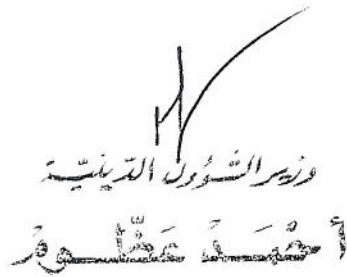 وزير الشؤون الدّينيّة
أحمَد عَظّوم